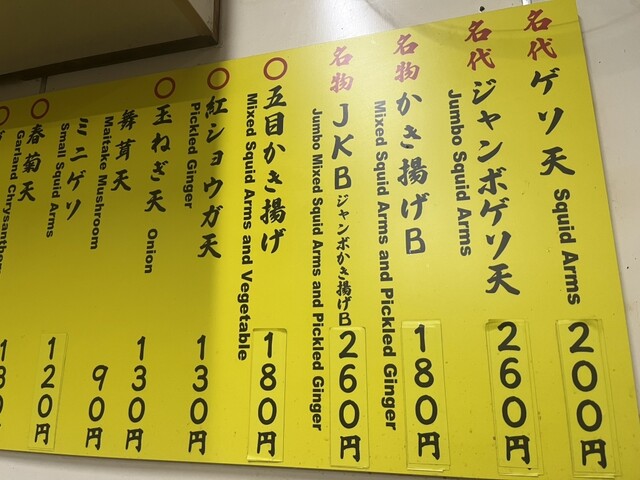 名代 ゲソ天
Squid Arms
200円
名代 ジャンボゲソ天
Jumbo Squid Arms
260円
名物 かき揚げB
Mixed Squid Arms and Pickled Ginger
180円
名物 JKB ジャンボかき揚げB
Jumbo Mixed Squid Arms and Pickled Ginger
260円
○ 五目かき揚げ
Mixed Squid Arms and Vegetable
180円
○ 紅ショウガ天
Pickled Ginger
130円
○ 玉ねぎ天
Onion
130円
舞茸天
Maitake Mushroom
90円
ミニゲソ
Small Squid Arms
120円
○ 春菊天
Garland